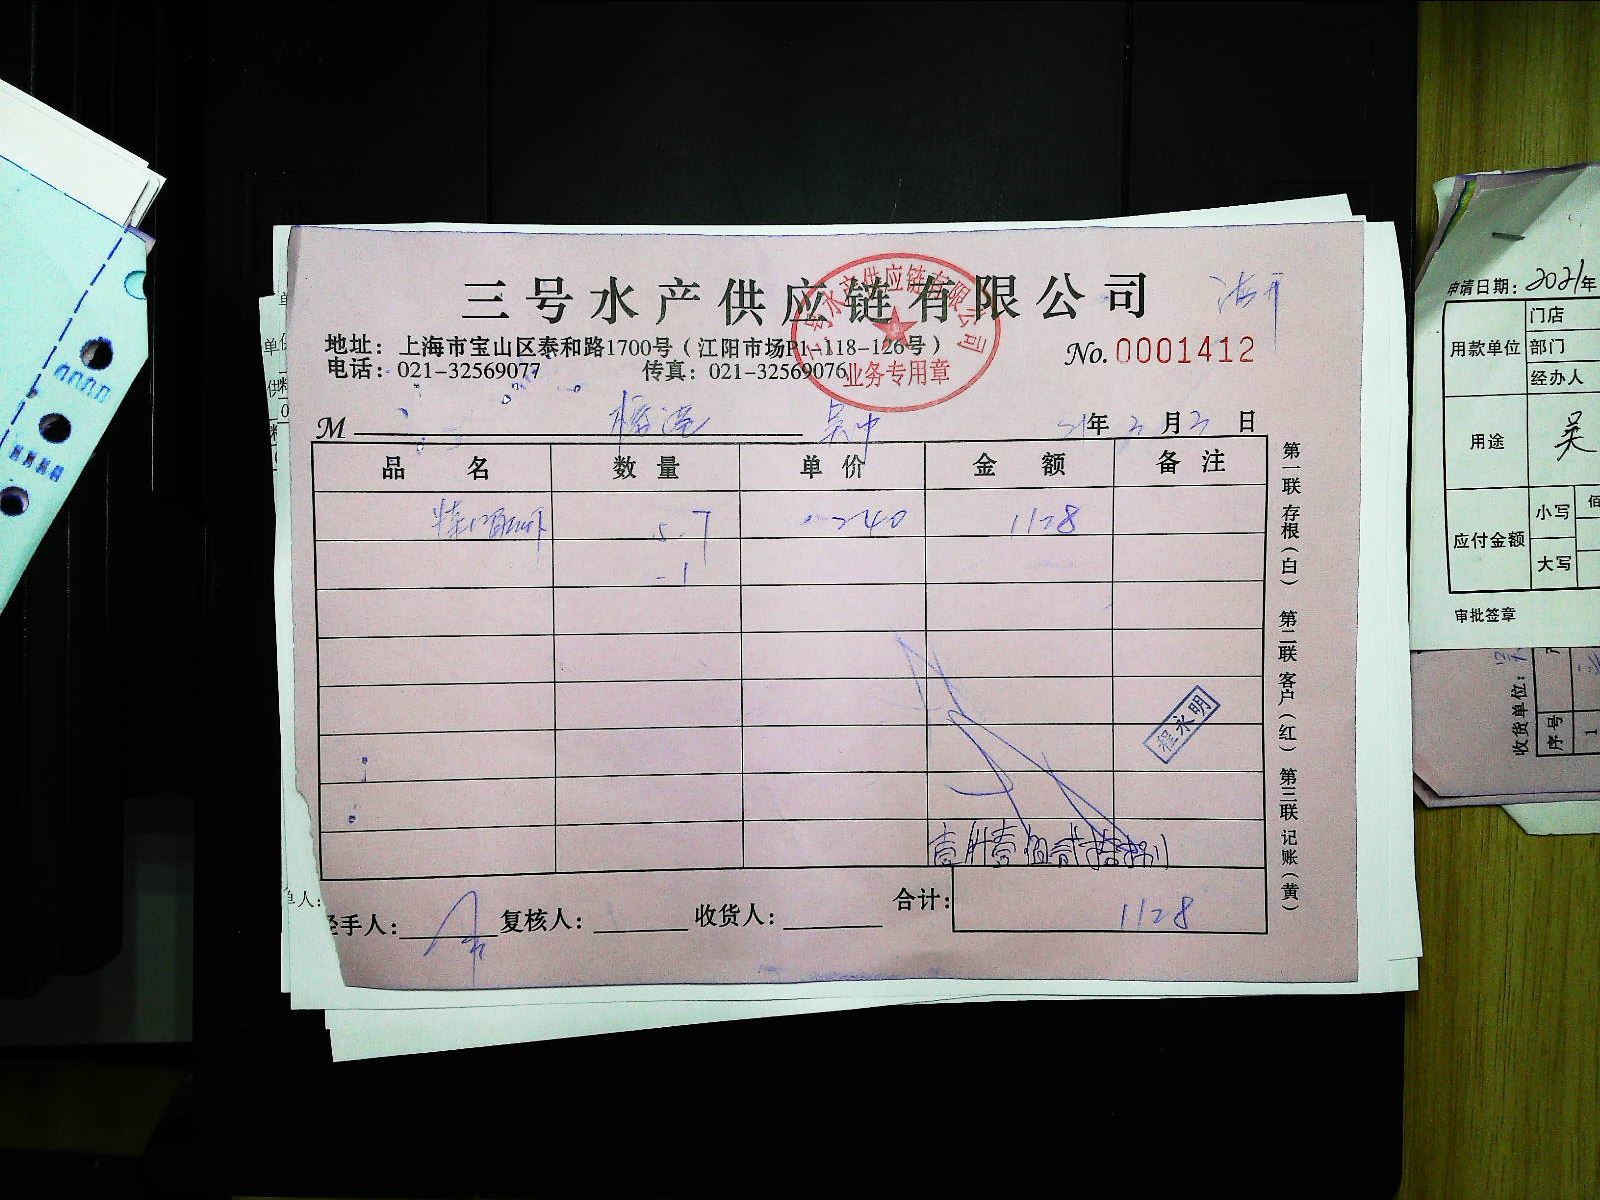 三号水产供应链有限公司
地址：上海市宝山区泰和路1700号（江阳市场P1-118-126号）
电话：021-32569077 传真：021-32569076
No. 0001412
三号水产供应链有限公司
业务专用章
M 吴中 21年3月3日
品名 数量 单价 金额 备注
5.7 240 1128
-1
程永明
壹仟壹佰贰拾捌
合计： 1128
经手人： 复核人： 收货人：
第一联 存根（白） 第二联 客户（红） 第三联 记账（黄）
单人：
申请日期：2021年
用款单位 门店
部门
经办人
用途 吴
应付金额 小写 佰
大写
审批签章
收货单位：
序号
1